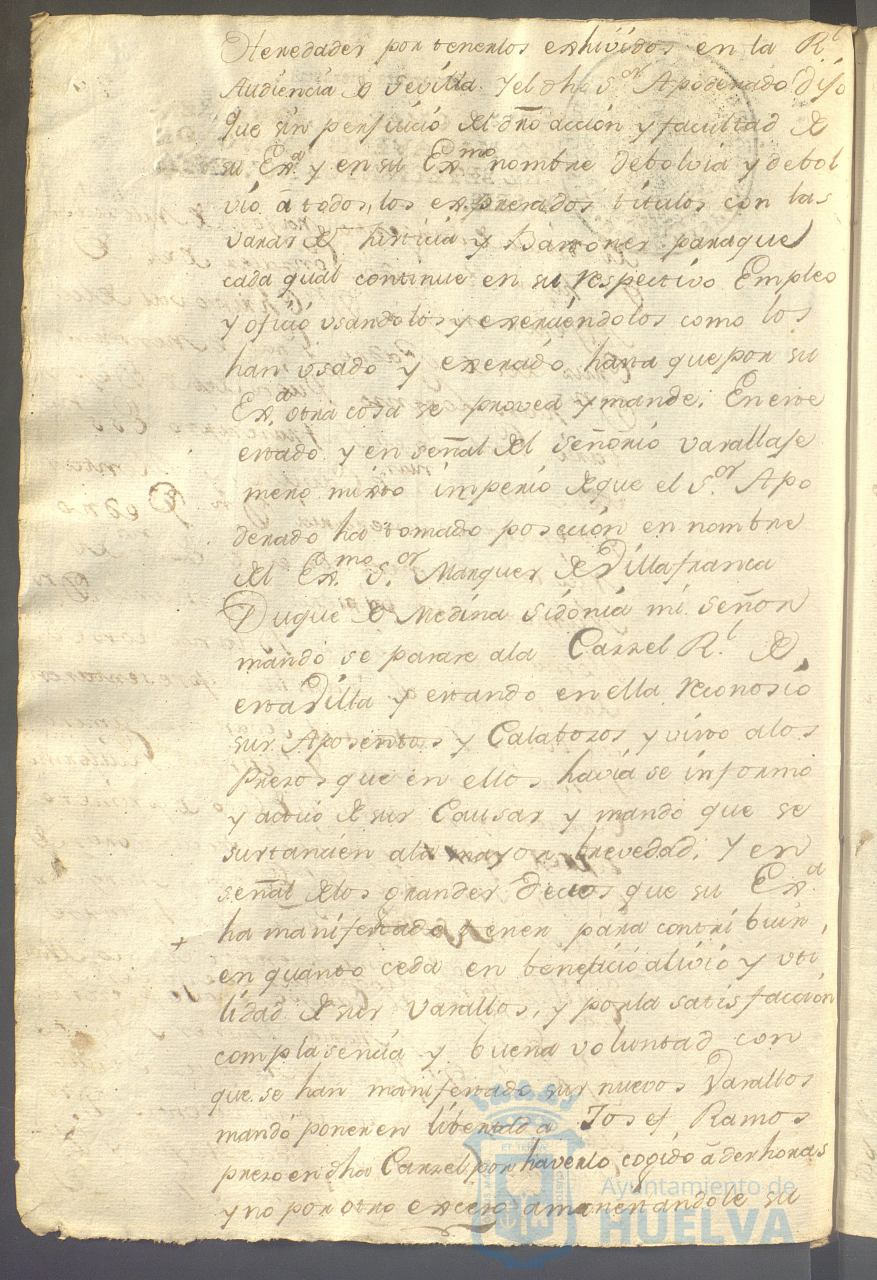 Heredades por tenerlos exhividos en la Rl.
Audiencia de Sevilla. Y el dho Sor. Apoderado dijo
Que sin perjuicio del dro accion y facultad de
su Exa. y en su Exmo. nombre debolvia y debol
vio á todos, los expresados titulos con las
varas de Justicia y Bastones paraque
cada qual continue en su respectivo Empleo
y oficio usandolos y exerciendolos como los
han usado y exercido, hasta que por su
Exa. otra cosa se provea y mande; En este
estado y en señal del señorio vasallase
mero mixto imperio de que el Sor. Apo
derado ha tomado poseción en nombre
del Exmo. Sor. Marques de Villafranca
Duque de Medina Sidonia mi señor
mandó se pasase ala Carzel Rl. de
esta Villa y estando en ella reconosió
sus Aposentos y Calabozos y visto alos
Presos que en ellos havia se informó
y de sus Causas y mandó que se
sustancien ala mayor brevedad; Y en
señal delos grandes deceos que su Exa.
ha manifestado tener para contribuir,
en quanto ceda en beneficio alivio y uti
lidad de sus vasallos, y por la satisfacción
complasencia y buena voluntad con
que se han manifestado sus nuevos Vasallos
mandó poner en libertad a Josef Ramos
preso en dha Carzel por haverlo cogido á deshoras
y no por otro exceso amonestandole su
Ayuntamiento de
HUELVA